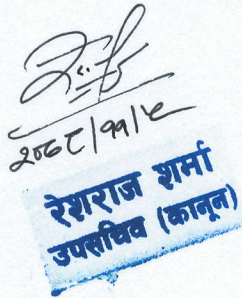 २०६८/११/५
रेशराज शर्मा
उपसचिव (कानून)